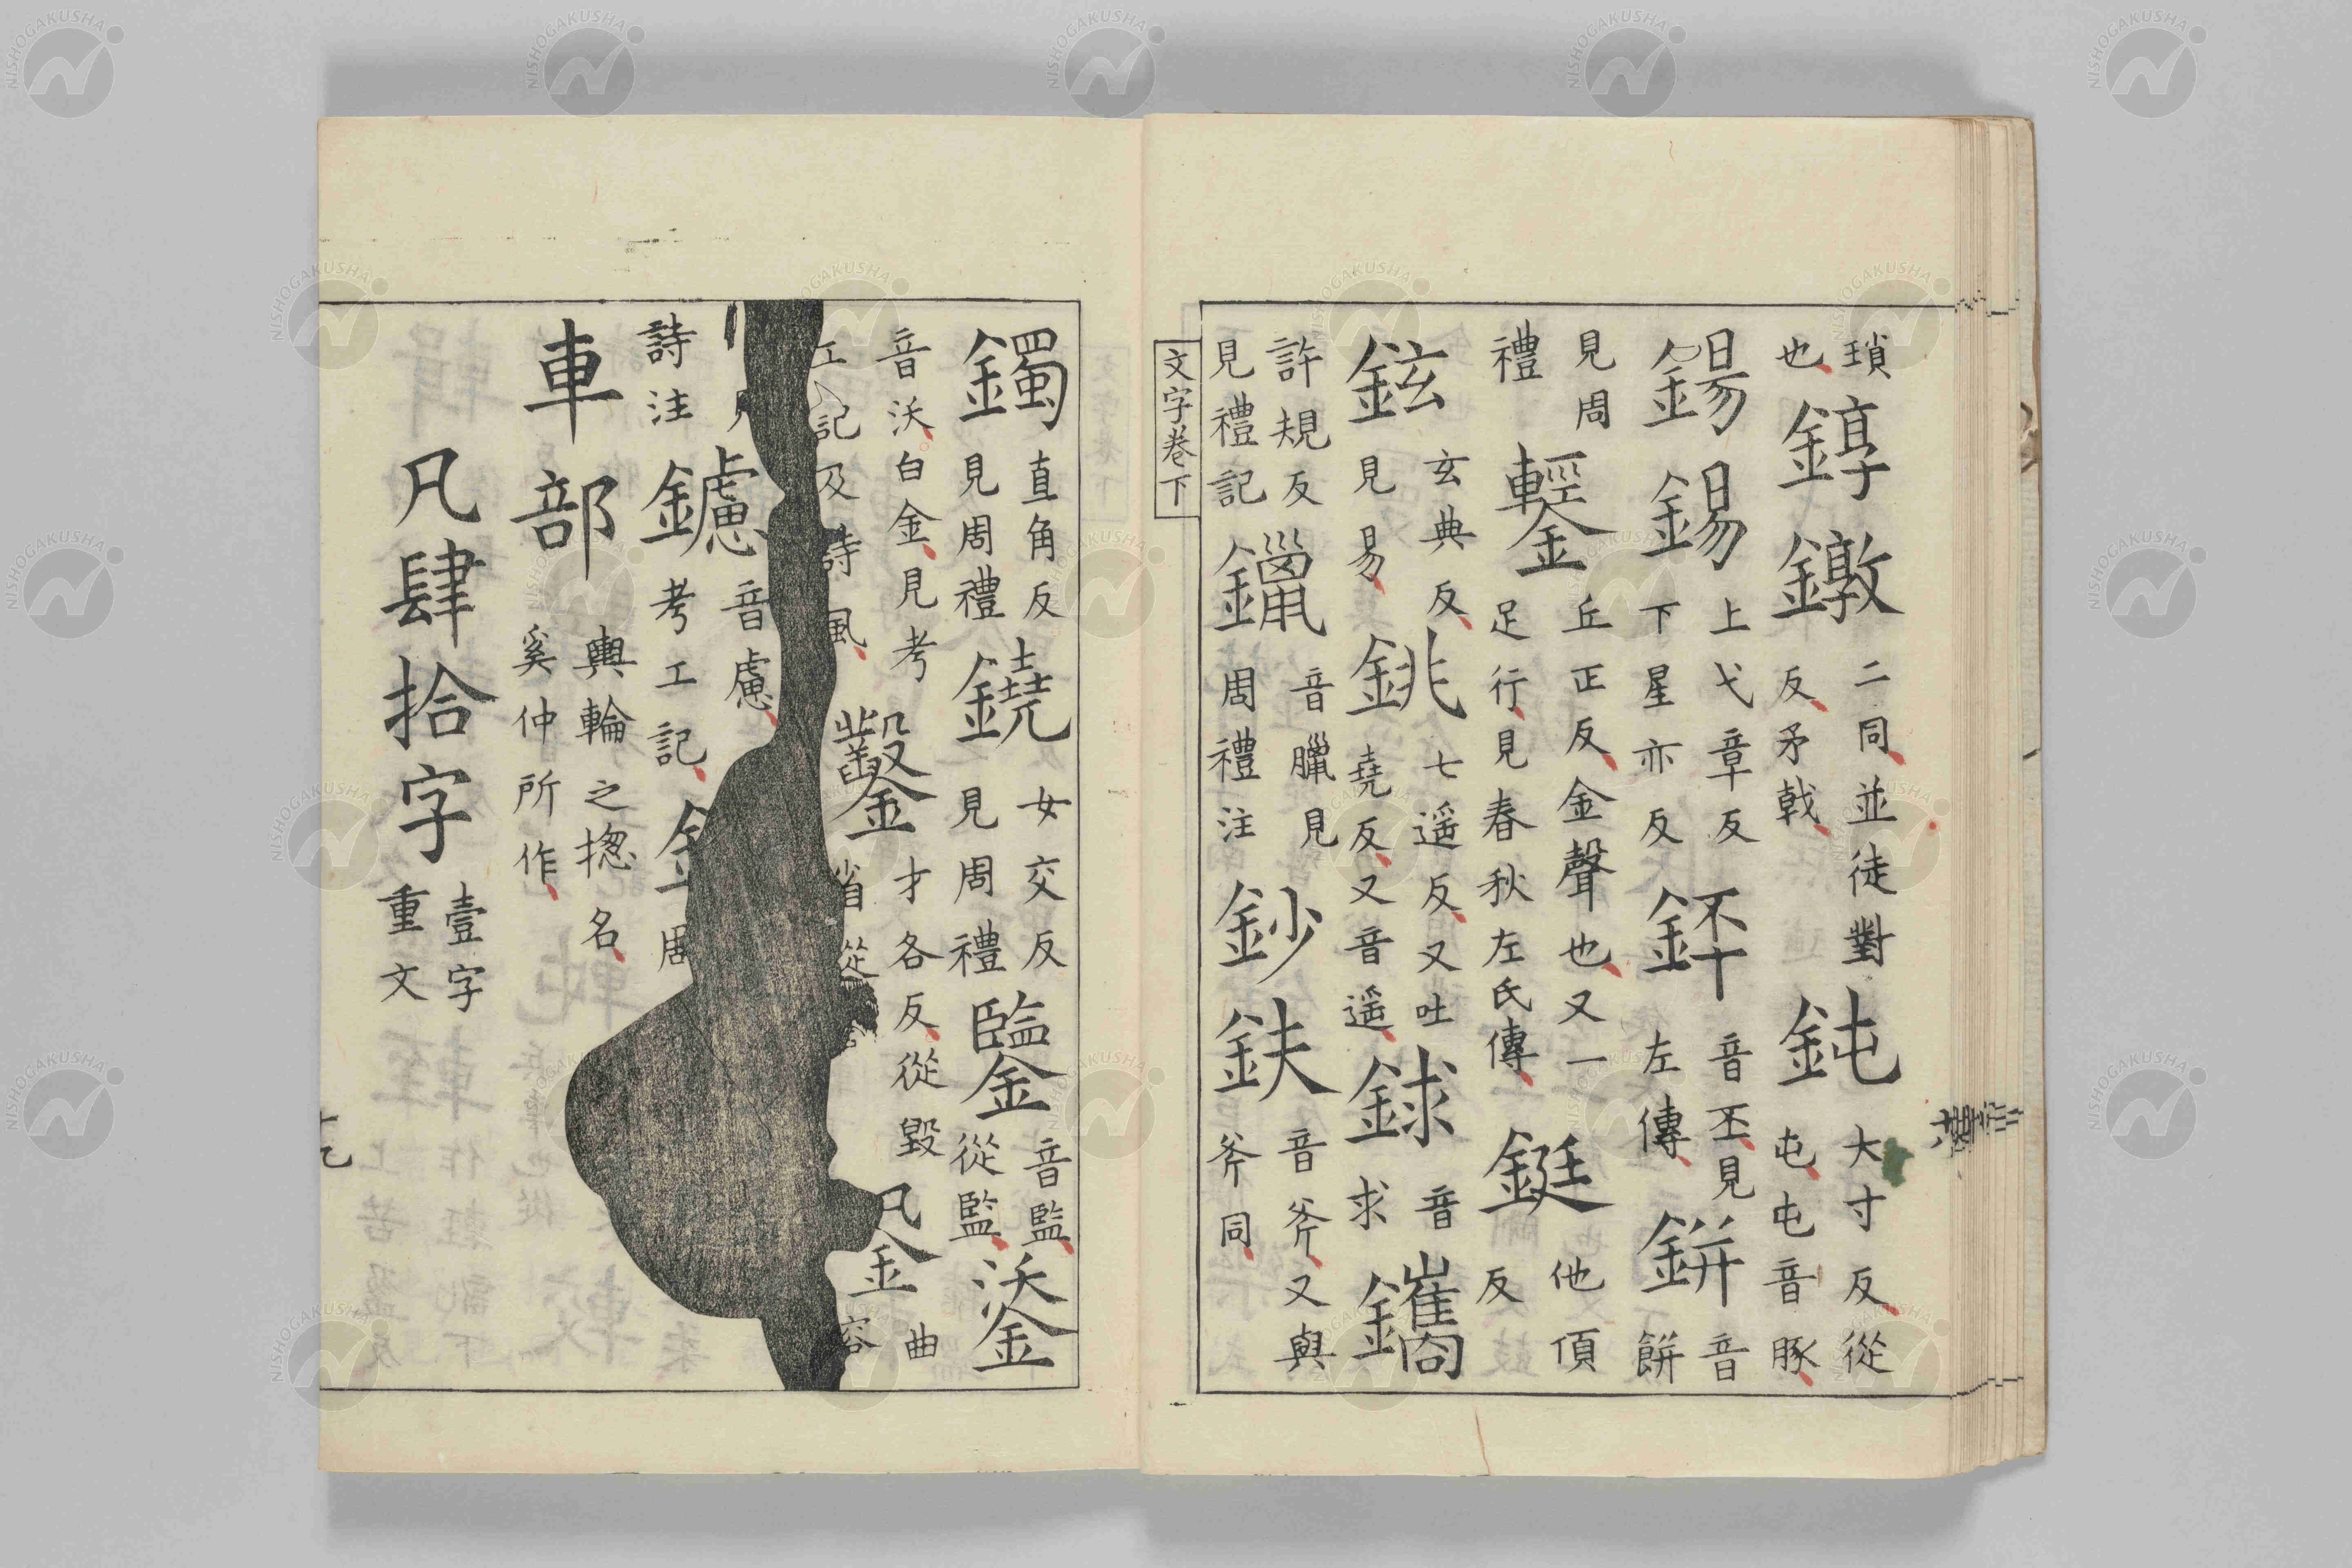 瑣
也
錞鐓
二同並徒對
反矛戟
鈍
大寸反從
屯屯音豚
鍚錫
上弋章反
下星亦反
鉟
音丕見
左傳
鉼
音
餅
見周
禮
鑋
丘正反金聲也又一
足行見春秋左氏傳
鋌
他頂
反
鉉
玄典反
見易
銚
七遥反又吐
堯反又音遥
銶
音
求
鑴
許規反
見禮記
鑞
音臘見
周禮注
鈔鈇
音斧又與
斧同
文字卷下
鐲
直角反
見周禮
鐃
女交反
見周禮
鑒
音監
從監
鋈
音沃白金見考
記及詩風
鑿
才各反從毀
省從
曲
容
鑢
音慮
考工記
詩注
車部
輿輪之揔名
奚仲所作
凡肆拾字
壹字
重文
NISHOGAKUSHA